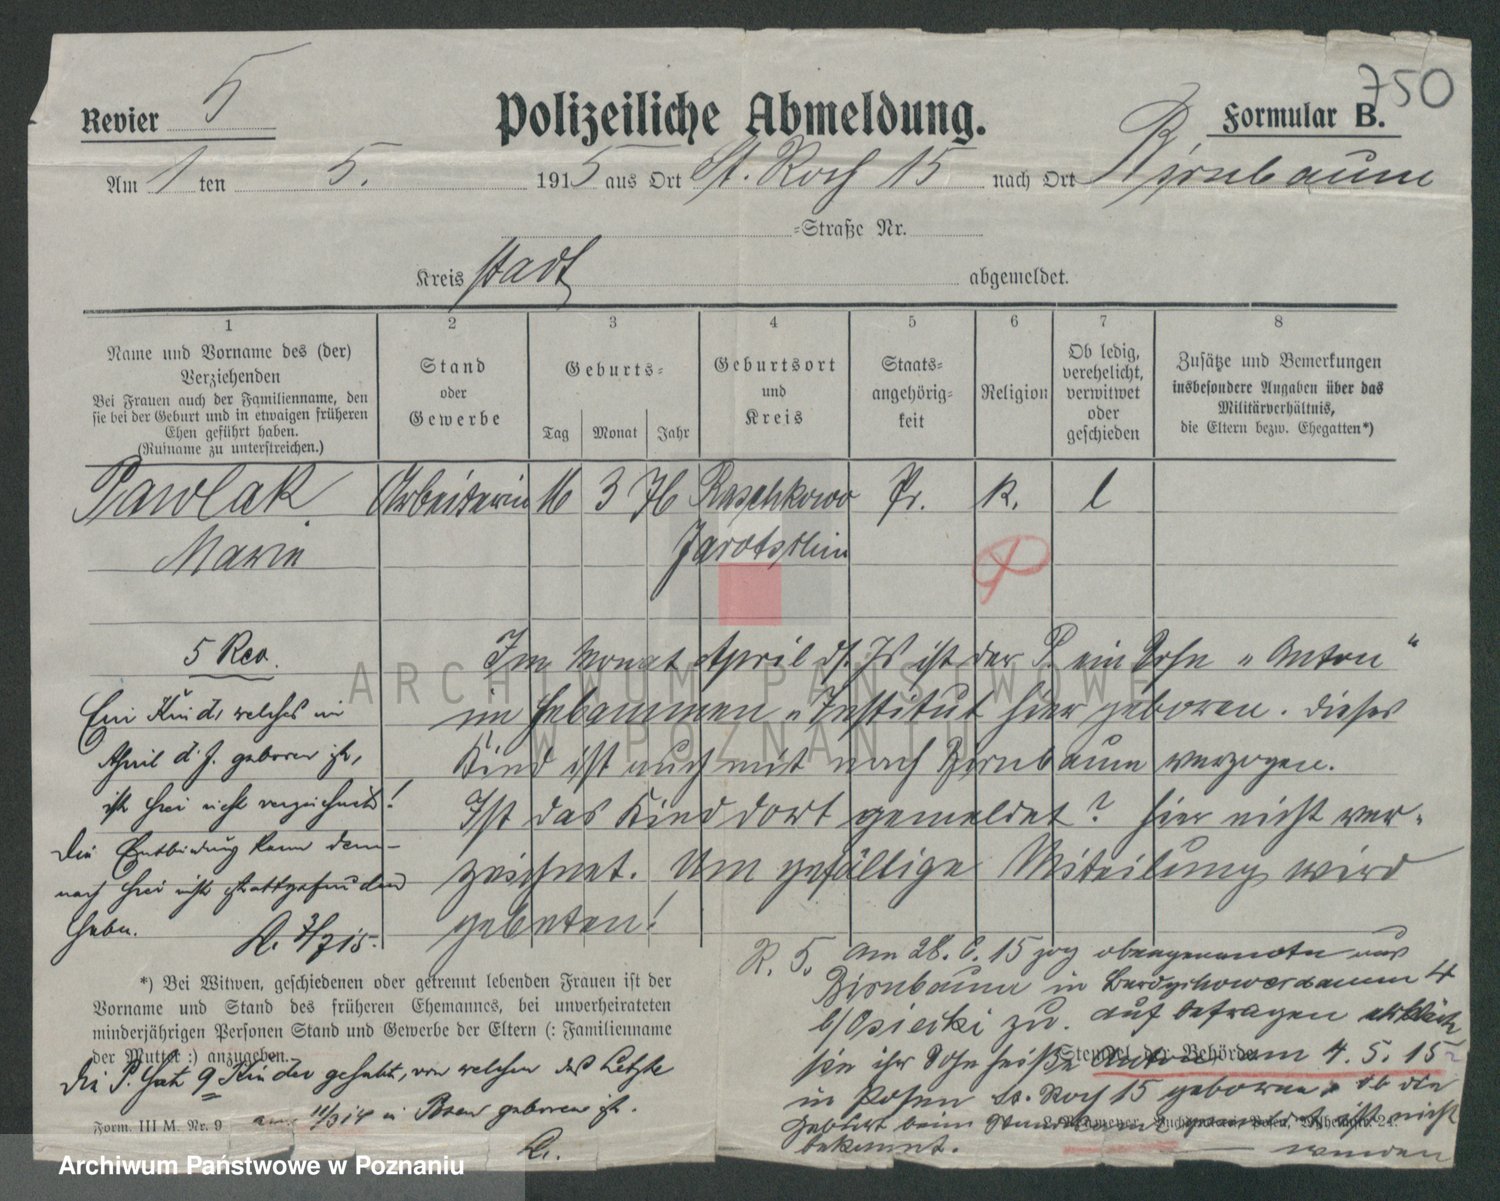 750
Revier 5
Polizeiliche Abmeldung.
Formular B.
Am 1 ten 5. 1915 aus Ort St. Roch 15 nach Ort Birnbaum
-Straße Nr.
Kreis stadt abgemeldet.
1 2 3 4 5 6 7 8
Name und Vorname des (der)
Verziehenden
Bei Frauen auch der Familienname, den
sie bei der Geburt und in etwaigen früheren
Ehen geführt haben.
(Rufname zu unterstreichen.)
Stand
oder
Gewerbe
Geburts-
Tag Monat Jahr
Geburtsort
und
Kreis
Staats-
angehörig-
keit
Religion
Ob ledig,
verehelicht,
verwitwet
oder
geschieden
Zusätze und Bemerkungen
insbesondere Angaben über das
Militärverhältnis,
die Eltern bezw. Ehegatten*)
Pawlak Arbeiterin 16 3 76 Raschkowo Pr. k. l
Marie Jarotschin
P
5 Rev.
Ein Kind, welches im
April d. J. geboren ist,
ist hier nicht verzeichnet!
Die Entbindung kann dem-
nach hier nicht stattgefunden
haben.
Im Monat April ds. Js ist der P. ein Sohn "Anton"
im Hebammen-Institut hier geboren. Dieses
Kind ist auch mit nach Birnbaum verzogen.
Ist das Kind dort gemeldet? Hier nicht ver-
zeichnet. Um gefällige Mitteilung wird
gebeten!
R. 5. Am 28.6.15 zog obengenannte aus
Birnbaum in 4
b/Osiecki zu. Auf befragen erklärt
sie ihr Sohn heiße Anton am 4.5.15
in Posen St. Roch 15 geboren, ob die
Geburt beim Standesamt gemeldet ist nicht
bekannt. worden
*) Bei Witwen, geschiedenen oder getrennt lebenden Frauen ist der
Vorname und Stand des früheren Ehemannes, bei unverheirateten
minderjährigen Personen Stand und Gewerbe der Eltern (: Familienname
der Mutter :) anzugeben.
Stempel der Behörde
Die P. hat 9 Kinder gehabt, von welchen das Letzte
am 11/3 14 in Posen geboren ist.
Form. III M. Nr. 9
ARCHIWUM PAŃSTWOWE
W POZNANIU
Archiwum Państwowe w Poznaniu